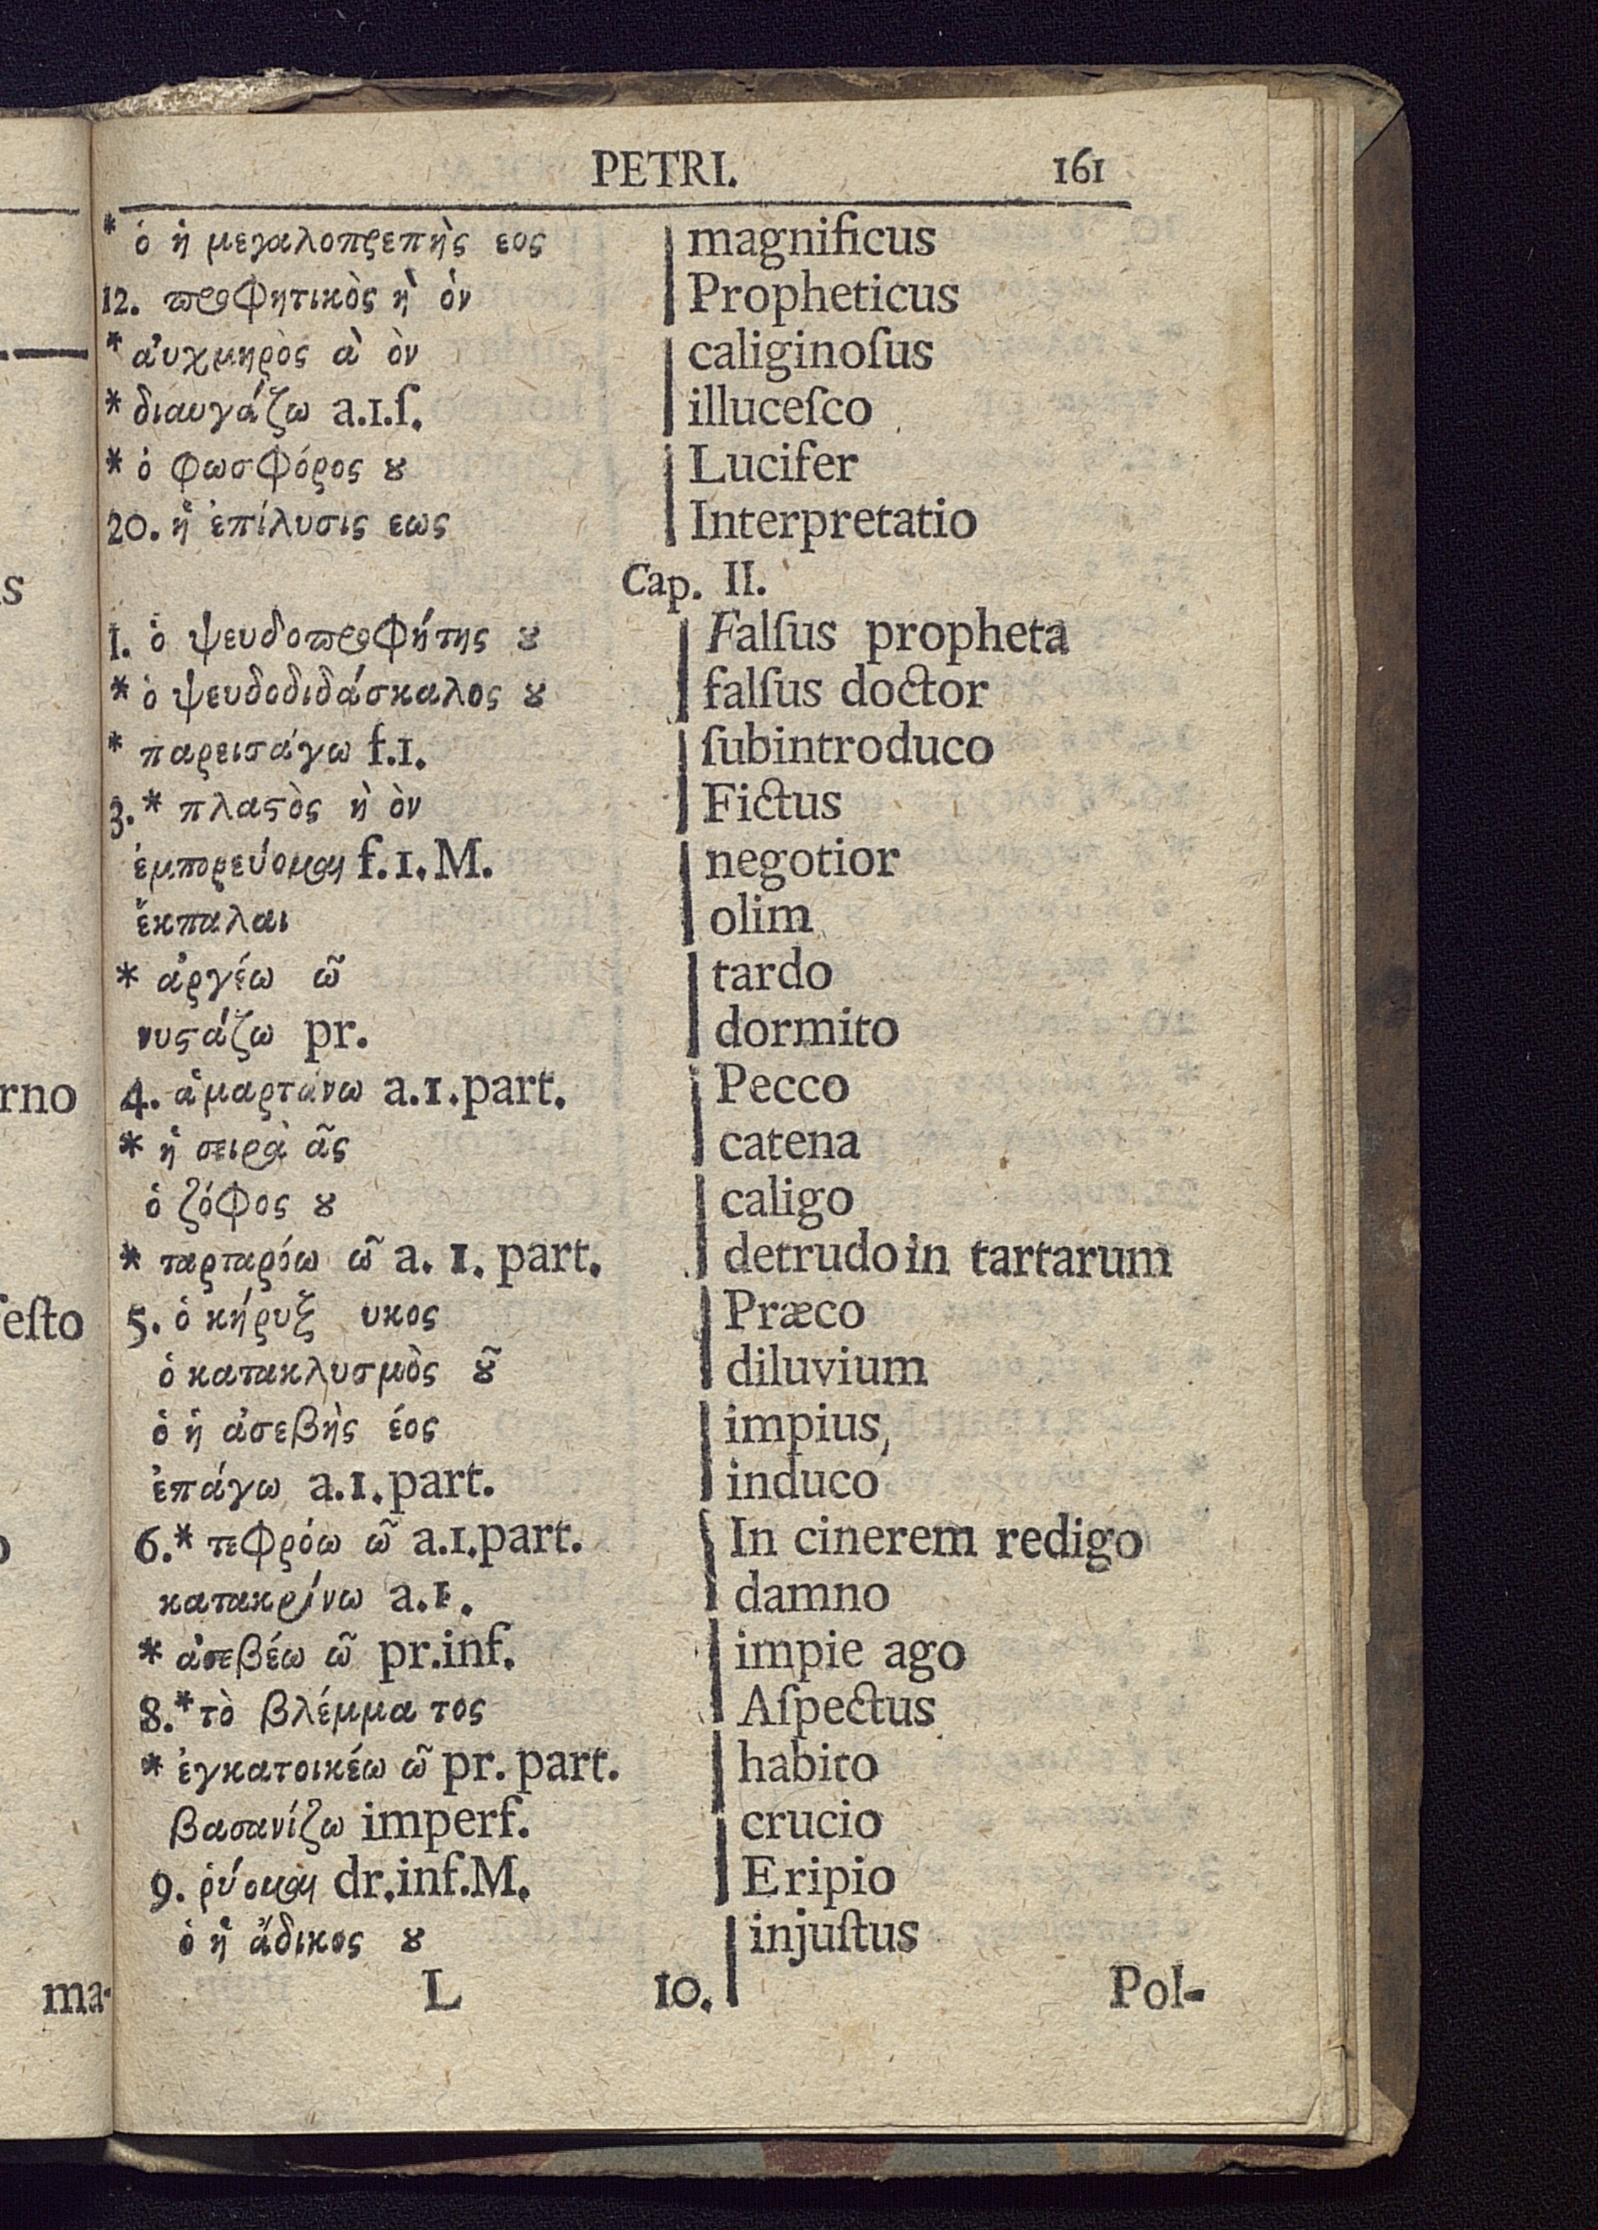 PETRI. 161
* ὁ ἡ μεγαλοπρεπὴς εος magnificus
12. προφητικὸς ὴ ὸν Propheticus
* ἀυχμηρὸς ὰ ὸν caliginoſus
* διαυγάζω a.1.ſ. illuceſco
* ὁ φωσφόρος ȣ Lucifer
20. ἡ ἐπίλυσις εως Interpretatio
Cap. II.
1. ὁ ψευδοπροφήτης ȣ Falſus propheta
* ὁ ψευδοδιδάσκαλος ȣ falſus doctor
* παρεισάγω f.1. ſubintroduco
3. * πλαϛὸς ὴ ὸν Fictus
ἐμπορεύομαι f.1.M. negotior
ἔκπαλαι olim
* ἀργέω ῶ tardo
νυϛάζω pr. dormito
4. ἁμαρτάνω a.1.part. Pecco
* ἡ σειρὰ ᾶς catena
ὁ ζόφος ȣ caligo
* ταρταρόω ῶ a. 1. part. detrudo in tartarum
5. ὁ κήρυξ υκος Præco
ὁ κατακλυσμὸς ȣ͂ diluvium
ὁ ἡ ἀσεβὴς έος impius,
ἐπάγω a.1.part. induco
6.* τεφρόω ῶ a.1.part. In cinerem redigo
κατακρίνω a.1. damno
* ἀσεβέω ῶ pr.inf. impie ago
8.* τὸ βλέμμα τος Aſpectus
* ἐγκατοικέω ῶ pr. part. habito
βασανίζω imperf. crucio
9. ῥύομαι dr.inf.M. Eripio
ὁ ἡ ἄδικος ȣ injuſtus
L 10. Pol-
s
rno
eſto
o
ma-